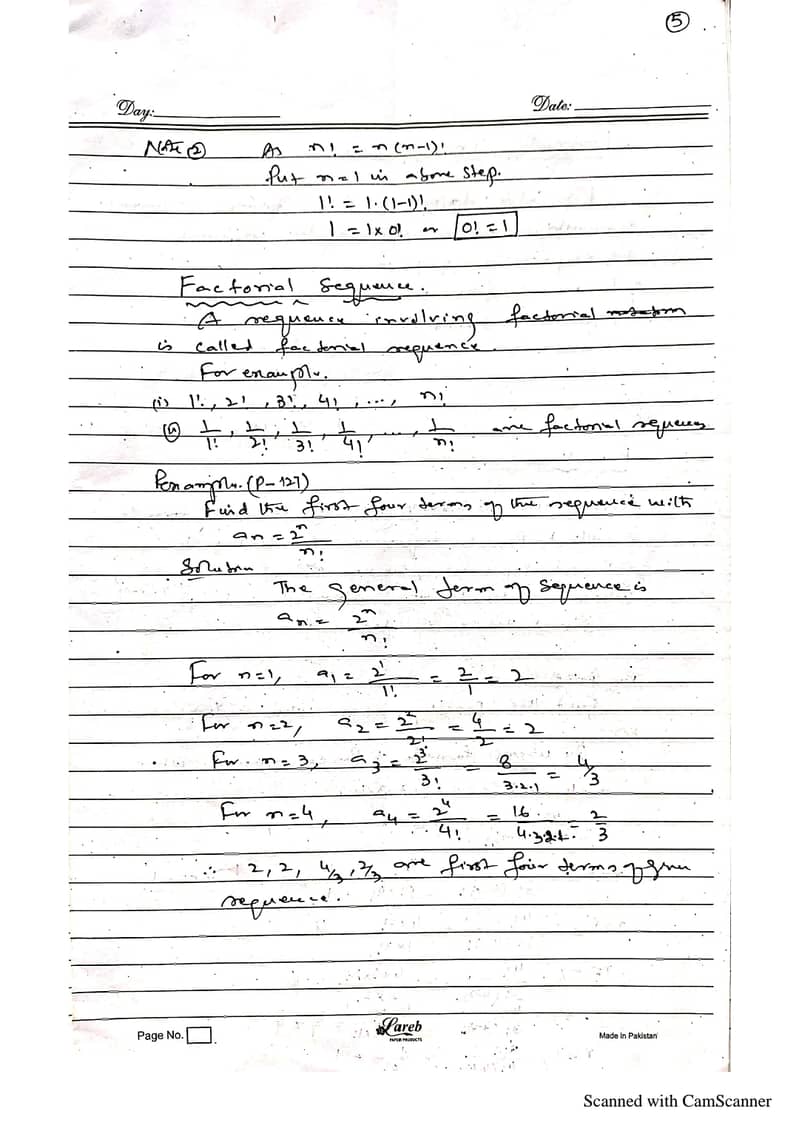 5
Day: Date:
Note 2 As n! = n(n-1)!
Put n=1 in above step.
1! = 1.(1-1)!
1 = 1x0! or 0! = 1
Factorial Sequence.
A sequence involving factorial
is called factorial sequence.
For example.
(i) 1!, 2!, 3!, 4!, ..., n!
(ii) 1/1!, 1/2!, 1/3!, 1/4!, ..., 1/n! are factorial sequences
(P-127)
Find the first four terms of the sequence with
an = 2^n/n!
Solution
The general term of sequence is
an = 2^n/n!
For n=1, a1 = 2^1/1! = 2/1 = 2
For n=2, a2 = 2^2/2! = 4/2 = 2
For n=3, a3 = 2^3/3! = 8/3.2.1 = 4/3
For n=4, a4 = 2^4/4! = 16/4.3.2.1 = 2/3
∴ 2, 2, 4/3, 2/3 are first four terms of given
sequence.
Page No. Lareb PAPER PRODUCTS Made In Pakistan
Scanned with CamScanner